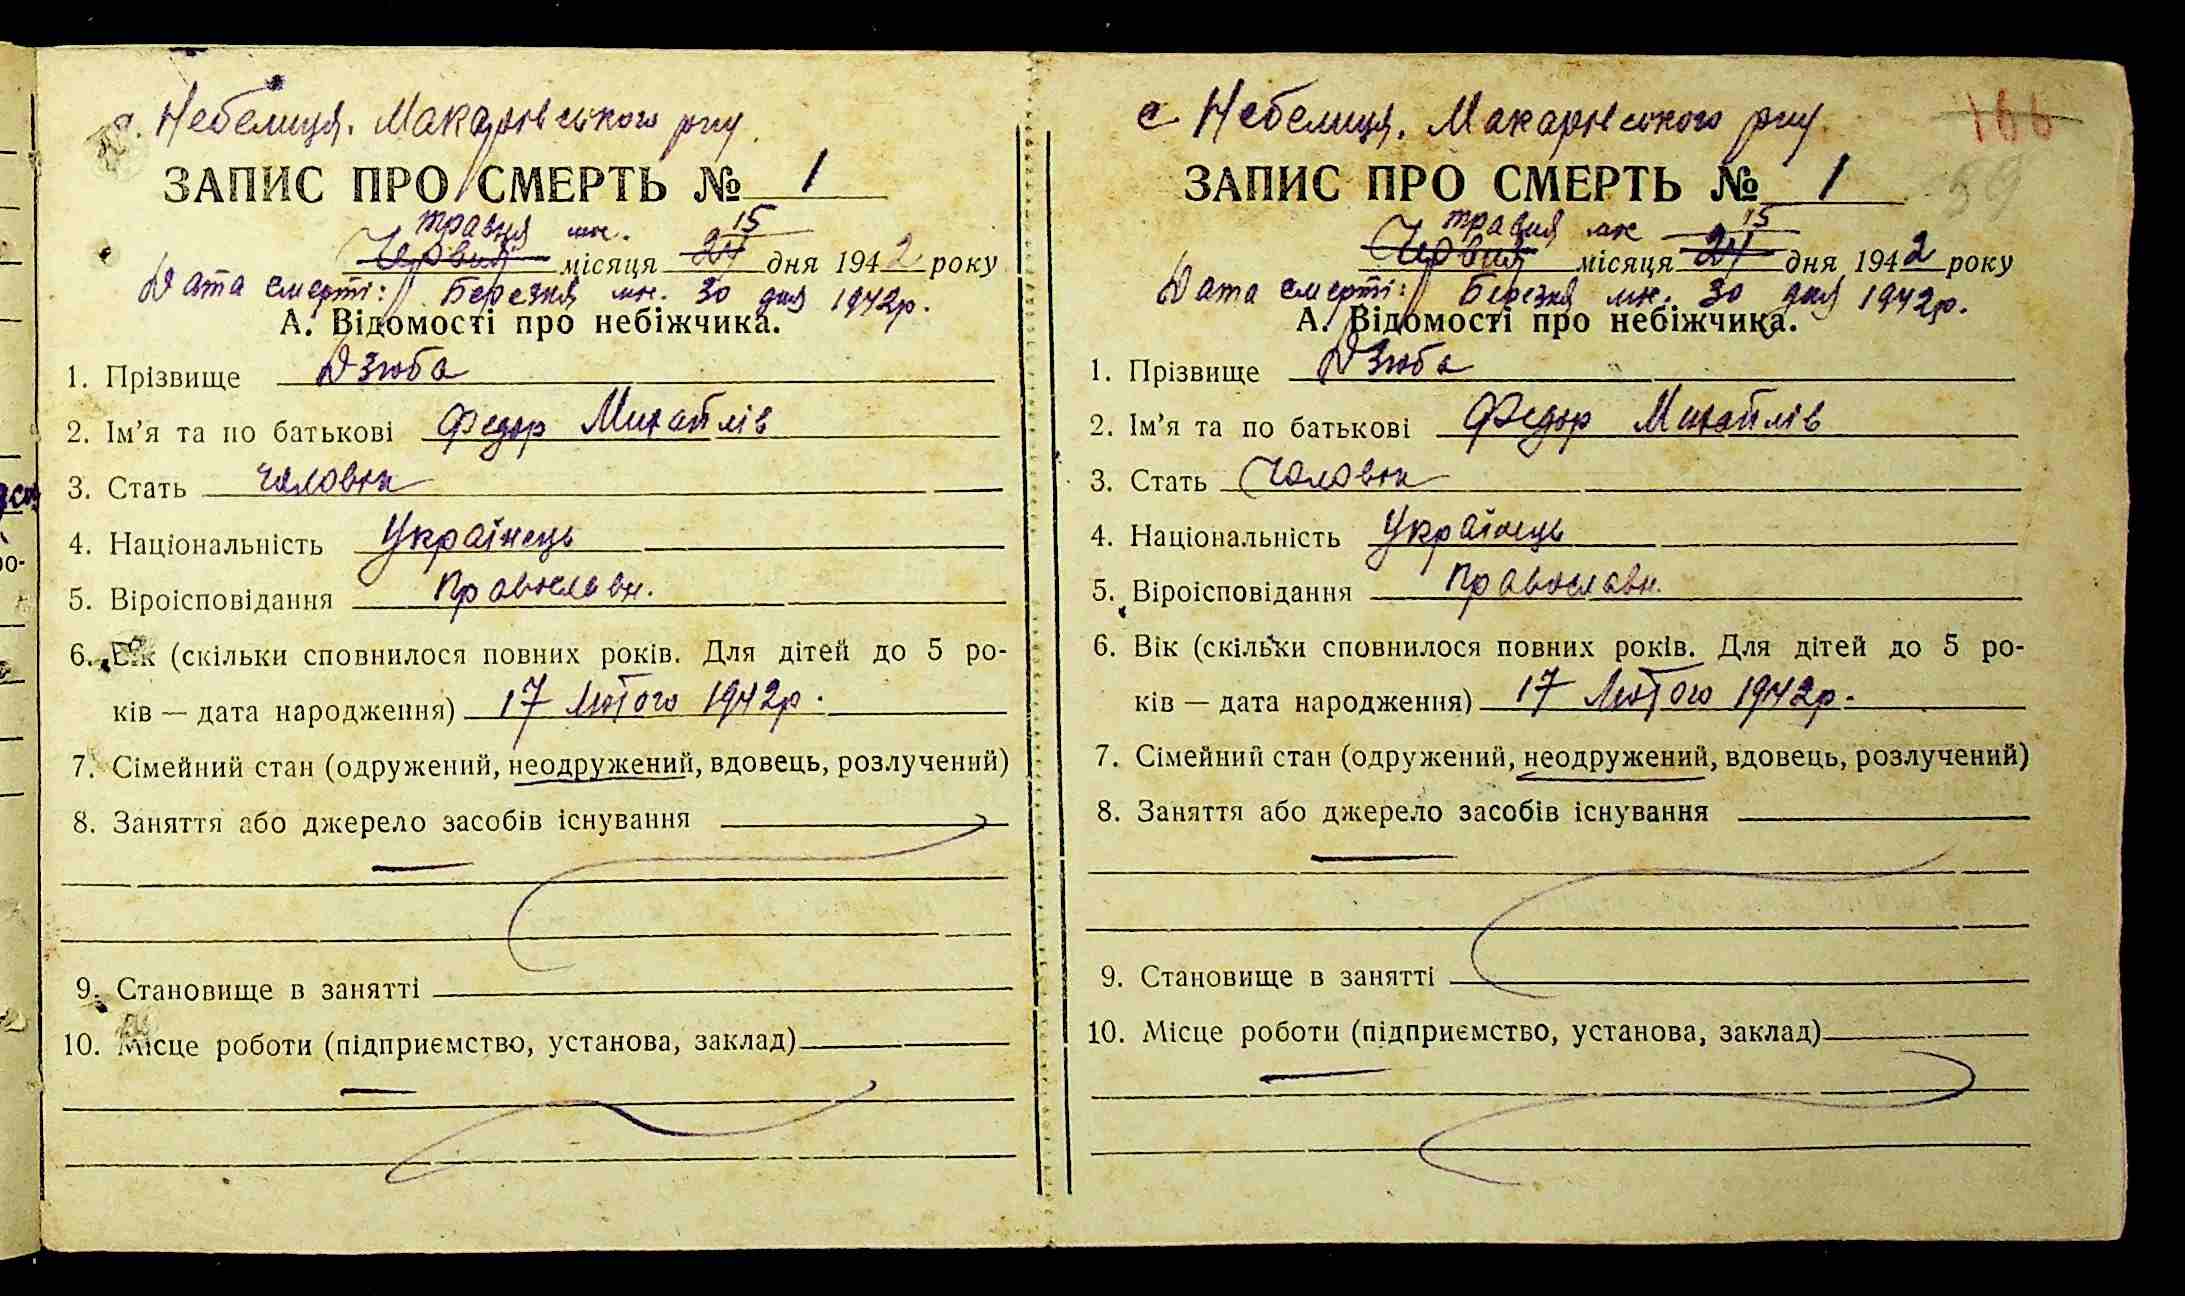 с. Небелиця. Макарівського р-ну.
ЗАПИС ПРО СМЕРТЬ № 1
травня мц. 15
Червня місяця 24 дня 1942 року
Дата смерті: Березня мц. 30 дня 1942р.
А. Відомості про небіжчика.
1. Прізвище Дзюба
2. Ім'я та по батькові Федор Михайлів
3. Стать чоловіч
4. Національність Українець
5. Віроісповідання Православн.
6. Вік (скільки сповнилося повних років. Для дітей до 5 ро-
ків — дата народження) 17 Лютого 1942р.
7. Сімейний стан (одружений, неодружений, вдовець, розлучений)
8. Заняття або джерело засобів існування
9. Становище в занятті
10. Місце роботи (підприємство, установа, заклад)
с Небелиця. Макарівського р-ну.
166
59
ЗАПИС ПРО СМЕРТЬ № 1
травня мц 15
Червня місяця 24 дня 1942 року
Дата смерті: Березня мц. 30 дня 1942р.
А. Відомості про небіжчика.
1. Прізвище Дзюба
2. Ім'я та по батькові Федор Михайлів
3. Стать Чоловіч
4. Національність Українець
5. Віроісповідання Православн.
6. Вік (скільки сповнилося повних років. Для дітей до 5 ро-
ків — дата народження) 17 Лютого 1942р.
7. Сімейний стан (одружений, неодружений, вдовець, розлучений)
8. Заняття або джерело засобів існування
9. Становище в занятті
10. Місце роботи (підприємство, установа, заклад)